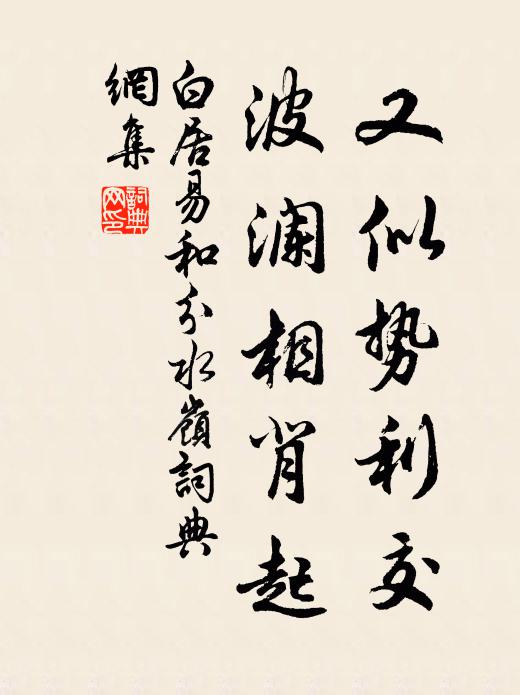 又似势利交
波澜相背起
白居易和分水嶺詞典
網集
詞典
网印